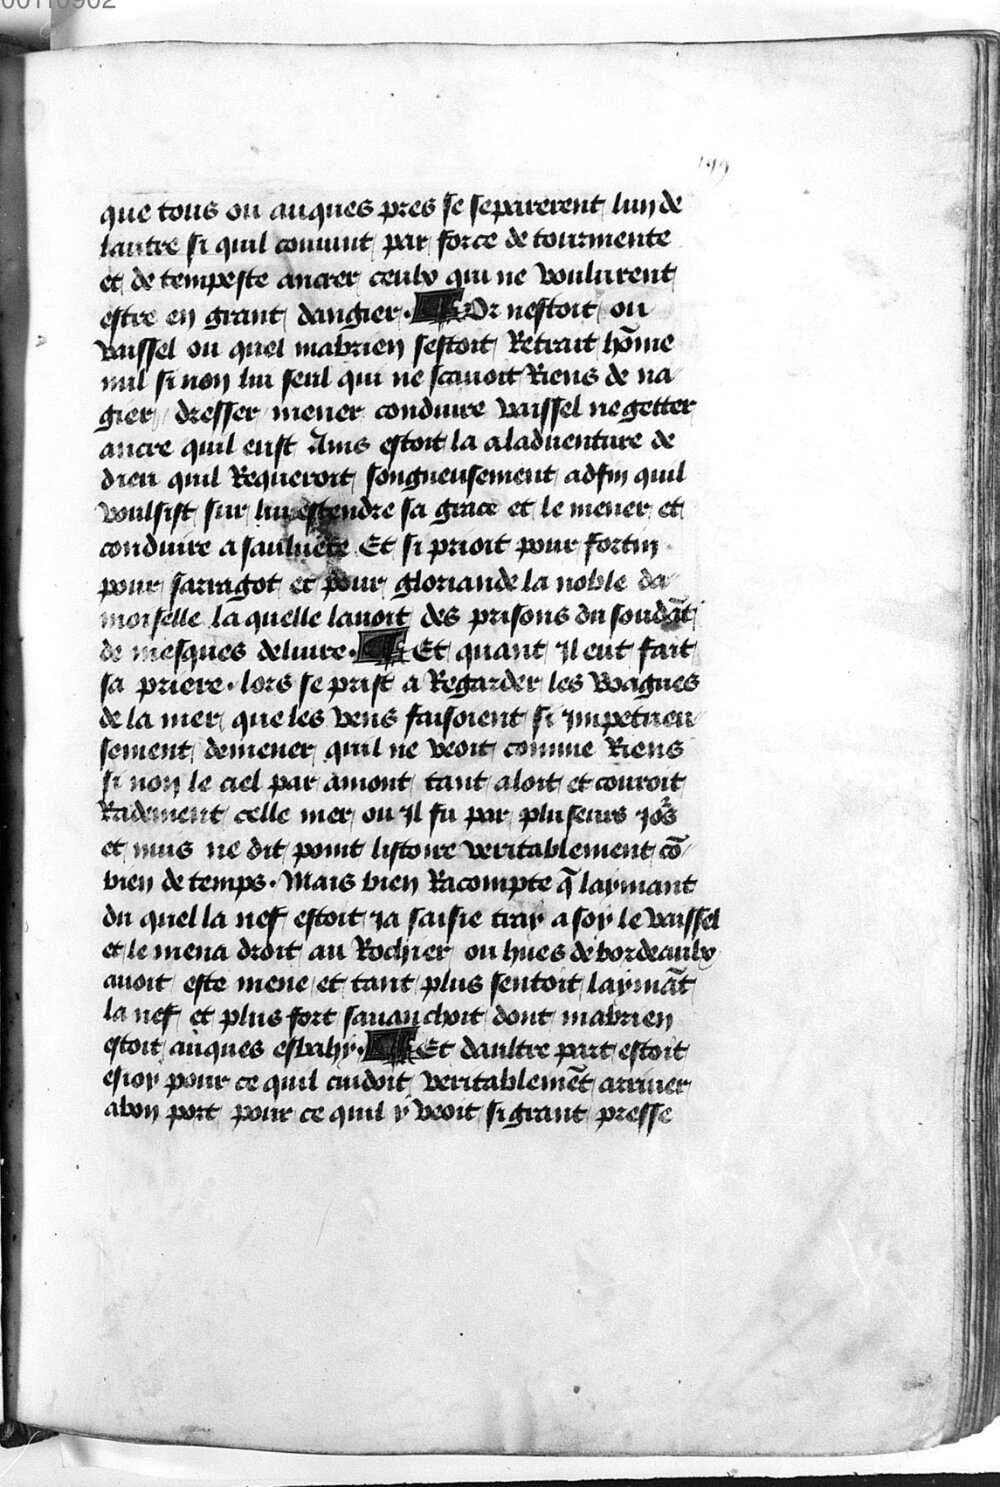 199
que tous ou auques pres se separerent lun de
lautre si quil conuint par force de tourmente
et de tempeste ancrer ceulx qui ne voulurent
estre en grant dangier. Or nestoit ou
vaissel ou quel mabrien sestoit Retrait hōme
nul si non lui seul qui ne scauoit Riens de na
gier dresser mener conduire vaissel ne getter
ancre quil eust Ains estoit la a laduenture de
dieu quil Requeroit songneusement adfin quil
voulsist sur lui estendre sa grace et le mener et
conduire a saulueté Et si prioit pour fortin
pour sarragot et pour gloriande la noble da
moiselle la quelle lauoit des prisons du soudāt
de mesques deliure. Et quant Il eut fait
sa priere. lors se prist a Regarder les vvagues
de la mer que les vens faisoient si Impetueu
sement demener quil ne veoit comme Riens
si non le ciel par amont tant aloit et couroit
Radement celle mer ou Il fu par pluseurs Jos
et mus ne dit point listoire veritablement cō
bien de temps. Mais bien Racompte q̄ laymant
du quel la nef estoit Ja saisie tray a soy le vaissel
et le mena droit au Rochier ou hues de bordeaulx
auoit este mene et tant plus sentoit laymāt
la nef et plus fort sauanchoit dont mabrien
estoit auques esbahy. Et daultre part estoit
esioy pour ce quil cuidoit veritablemēt arriuer
a bon port pour ce quil y veoit si grant presse